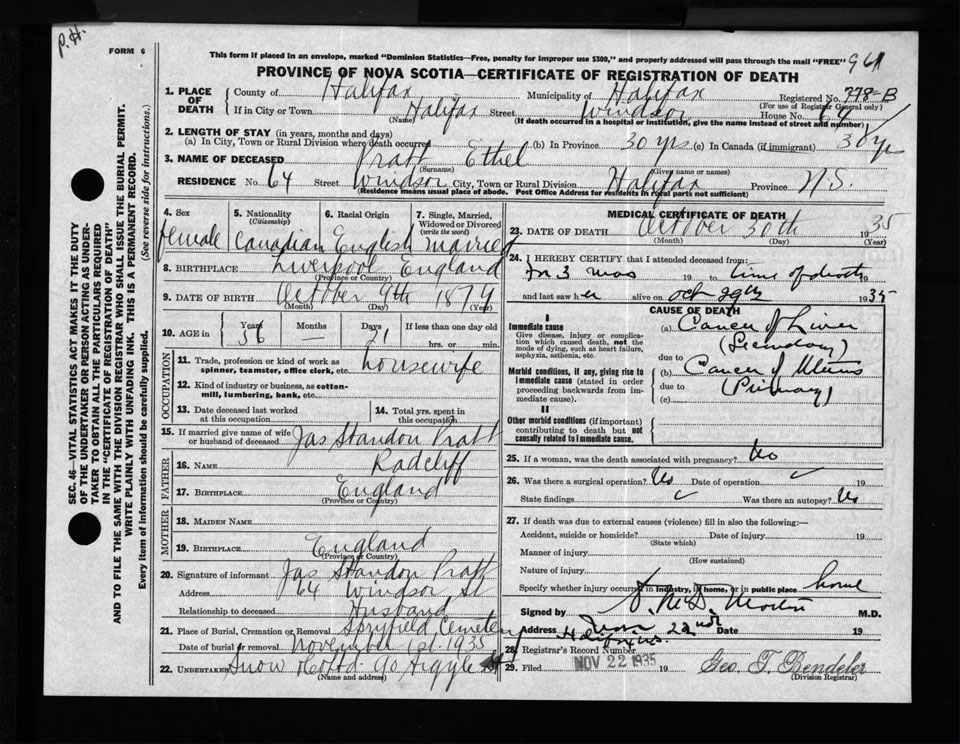 P.H.
FORM 6
This form if placed in an envelope, marked "Dominion Statistics—Free, penalty for improper use $300," and properly addressed will pass through the mail "FREE" 961
PROVINCE OF NOVA SCOTIA—CERTIFICATE OF REGISTRATION OF DEATH
1. PLACE OF DEATH County of Halifax Municipality of Halifax Registered No. 778-B
(For use of Registrar General only)
If in City or Town Halifax Street Windsor House No. 64
(Name) (If death occurred in a hospital or institution, give the name instead of street and number)
2. LENGTH OF STAY (in years, months and days)
(a) In City, Town or Rural Division where death occurred (b) In Province 30 yrs (c) In Canada (if immigrant) 30 yrs
3. NAME OF DECEASED Pratt Ethel
(Surname) (Given name or names)
RESIDENCE No. 64 Street Windsor City, Town or Rural Division Halifax Province N.S.
(Residence means usual place of abode. Post Office Address for residents in rural parts not sufficient)
SEC. 46—VITAL STATISTICS ACT MAKES IT THE DUTY
OF THE UNDERTAKER OR PERSON ACTING AS UNDER-
TAKER TO OBTAIN ALL THE PARTICULARS REQUIRED
IN THE "CERTIFICATE OF REGISTRATION OF DEATH"
AND TO FILE THE SAME WITH THE DIVISION REGISTRAR WHO SHALL ISSUE THE BURIAL PERMIT.
WRITE PLAINLY WITH UNFADING INK. THIS IS A PERMANENT RECORD.
Every item of information should be carefully supplied. (See reverse side for instructions.)
4. Sex 5. Nationality (Citizenship) 6. Racial Origin 7. Single, Married, Widowed or Divorced (write the word)
female Canadian English married
8. BIRTHPLACE Liverpool England
(Province or Country)
9. DATE OF BIRTH October 9th 1879
(Month) (Day) (Year)
10. AGE in Years Months Days If less than one day old
56 — 21 hrs. or min.
OCCUPATION
11. Trade, profession or kind of work as spinner, teamster, office clerk, etc. housewife
12. Kind of industry or business, as cotton-mill, lumbering, bank, etc.
13. Date deceased last worked at this occupation 14. Total yrs. spent in this occupation
15. If married give name of wife or husband of deceased Jas Standon Pratt
FATHER
16. NAME Radcliff
17. BIRTHPLACE England
(Province or Country)
MOTHER
18. MAIDEN NAME
19. BIRTHPLACE England
(Province or Country)
20. Signature of informant Jas Standon Pratt
Address 64 Windsor St
Relationship to deceased Husband
21. Place of Burial, Cremation or Removal Spryfield Cemetery
Date of burial or removal November 1st. 1935
22. UNDERTAKER Snow & Co Ltd. 90 Argyle St
(Name and address)
MEDICAL CERTIFICATE OF DEATH
23. DATE OF DEATH October 30th 1935
(Month) (Day) (Year)
24. I HEREBY CERTIFY that I attended deceased from:
For 3 mos 19 to time of death
and last saw her alive on Oct 29th 1935
CAUSE OF DEATH
I
Immediate cause
Give disease, injury or complication which caused death, not the mode of dying, such as heart failure, asphyxia, asthenia, etc.
(a) Cancer of Liver
(Secondary)
due to
Morbid conditions, if any, giving rise to immediate cause (stated in order proceeding backwards from immediate cause).
(b) Cancer of Uterus
due to (Primary)
(c)
II
Other morbid conditions (if important) contributing to death but not causally related to immediate cause.
25. If a woman, was the death associated with pregnancy? No
26. Was there a surgical operation? No Date of operation
State findings Was there an autopsy? No
27. If death was due to external causes (violence) fill in also the following:—
Accident, suicide or homicide? Date of injury 19
(State which)
Manner of injury
(How sustained)
Nature of injury
Specify whether injury occurred in industry, in home, or in public place home
Signed by Morton M.D.
Address Halifax N.S. Nov 22nd Date 19
28. Registrar's Record Number
29. Filed NOV 22 1935 Geo. T. Bendeler
(Division Registrar)